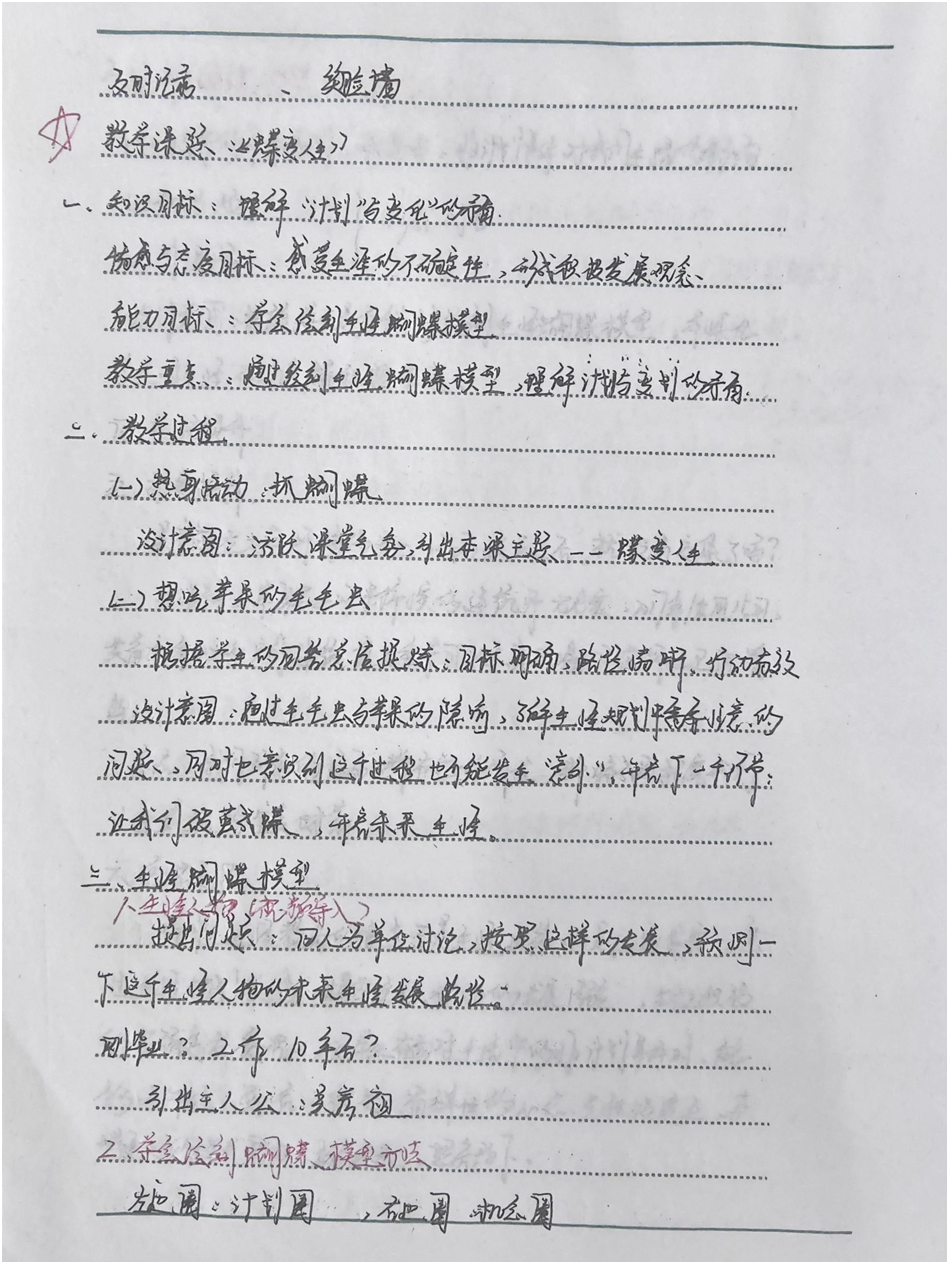 及时记录 、 经验墙
教学课题:《蝶变人生》
一、知识目标:理解“计划”与变化”的矛盾.
情感与态度目标:感受生涯的不确定性,形成积极发展观念、
能力目标、:学会绘制生涯蝴蝶模型
教学重点、:通过绘制生涯蝴蝶模型,理解计划与变划的矛盾.
二、教学过程
(一)热身活动:抓蝴蝶
设计意图:活跃课堂气氛,引出本课主题——蝶变人生
(二)想吃苹果的毛毛虫
根据学生的回答总结提炼:目标明确、路径清晰、行动有效
设计意图:通过毛毛虫与苹果的,了解生涯规划中需要注意的
问题、同时也意识到这个过程也可能发生“意外”,下一个环节:
让我们破茧成蝶,未来生涯。
三、生涯蝴蝶模型
1.生涯人物(视频导入)
提出问题:四人为单位讨论,按照这样的发展,预测一
下这个生涯人物的未来生涯发展路径。
刚毕业?工作10年后?
引出主人公:吴彦祖
2.学会绘制蝴蝶模型方法
左边圈:计划圈 ,右边圈:机会圈